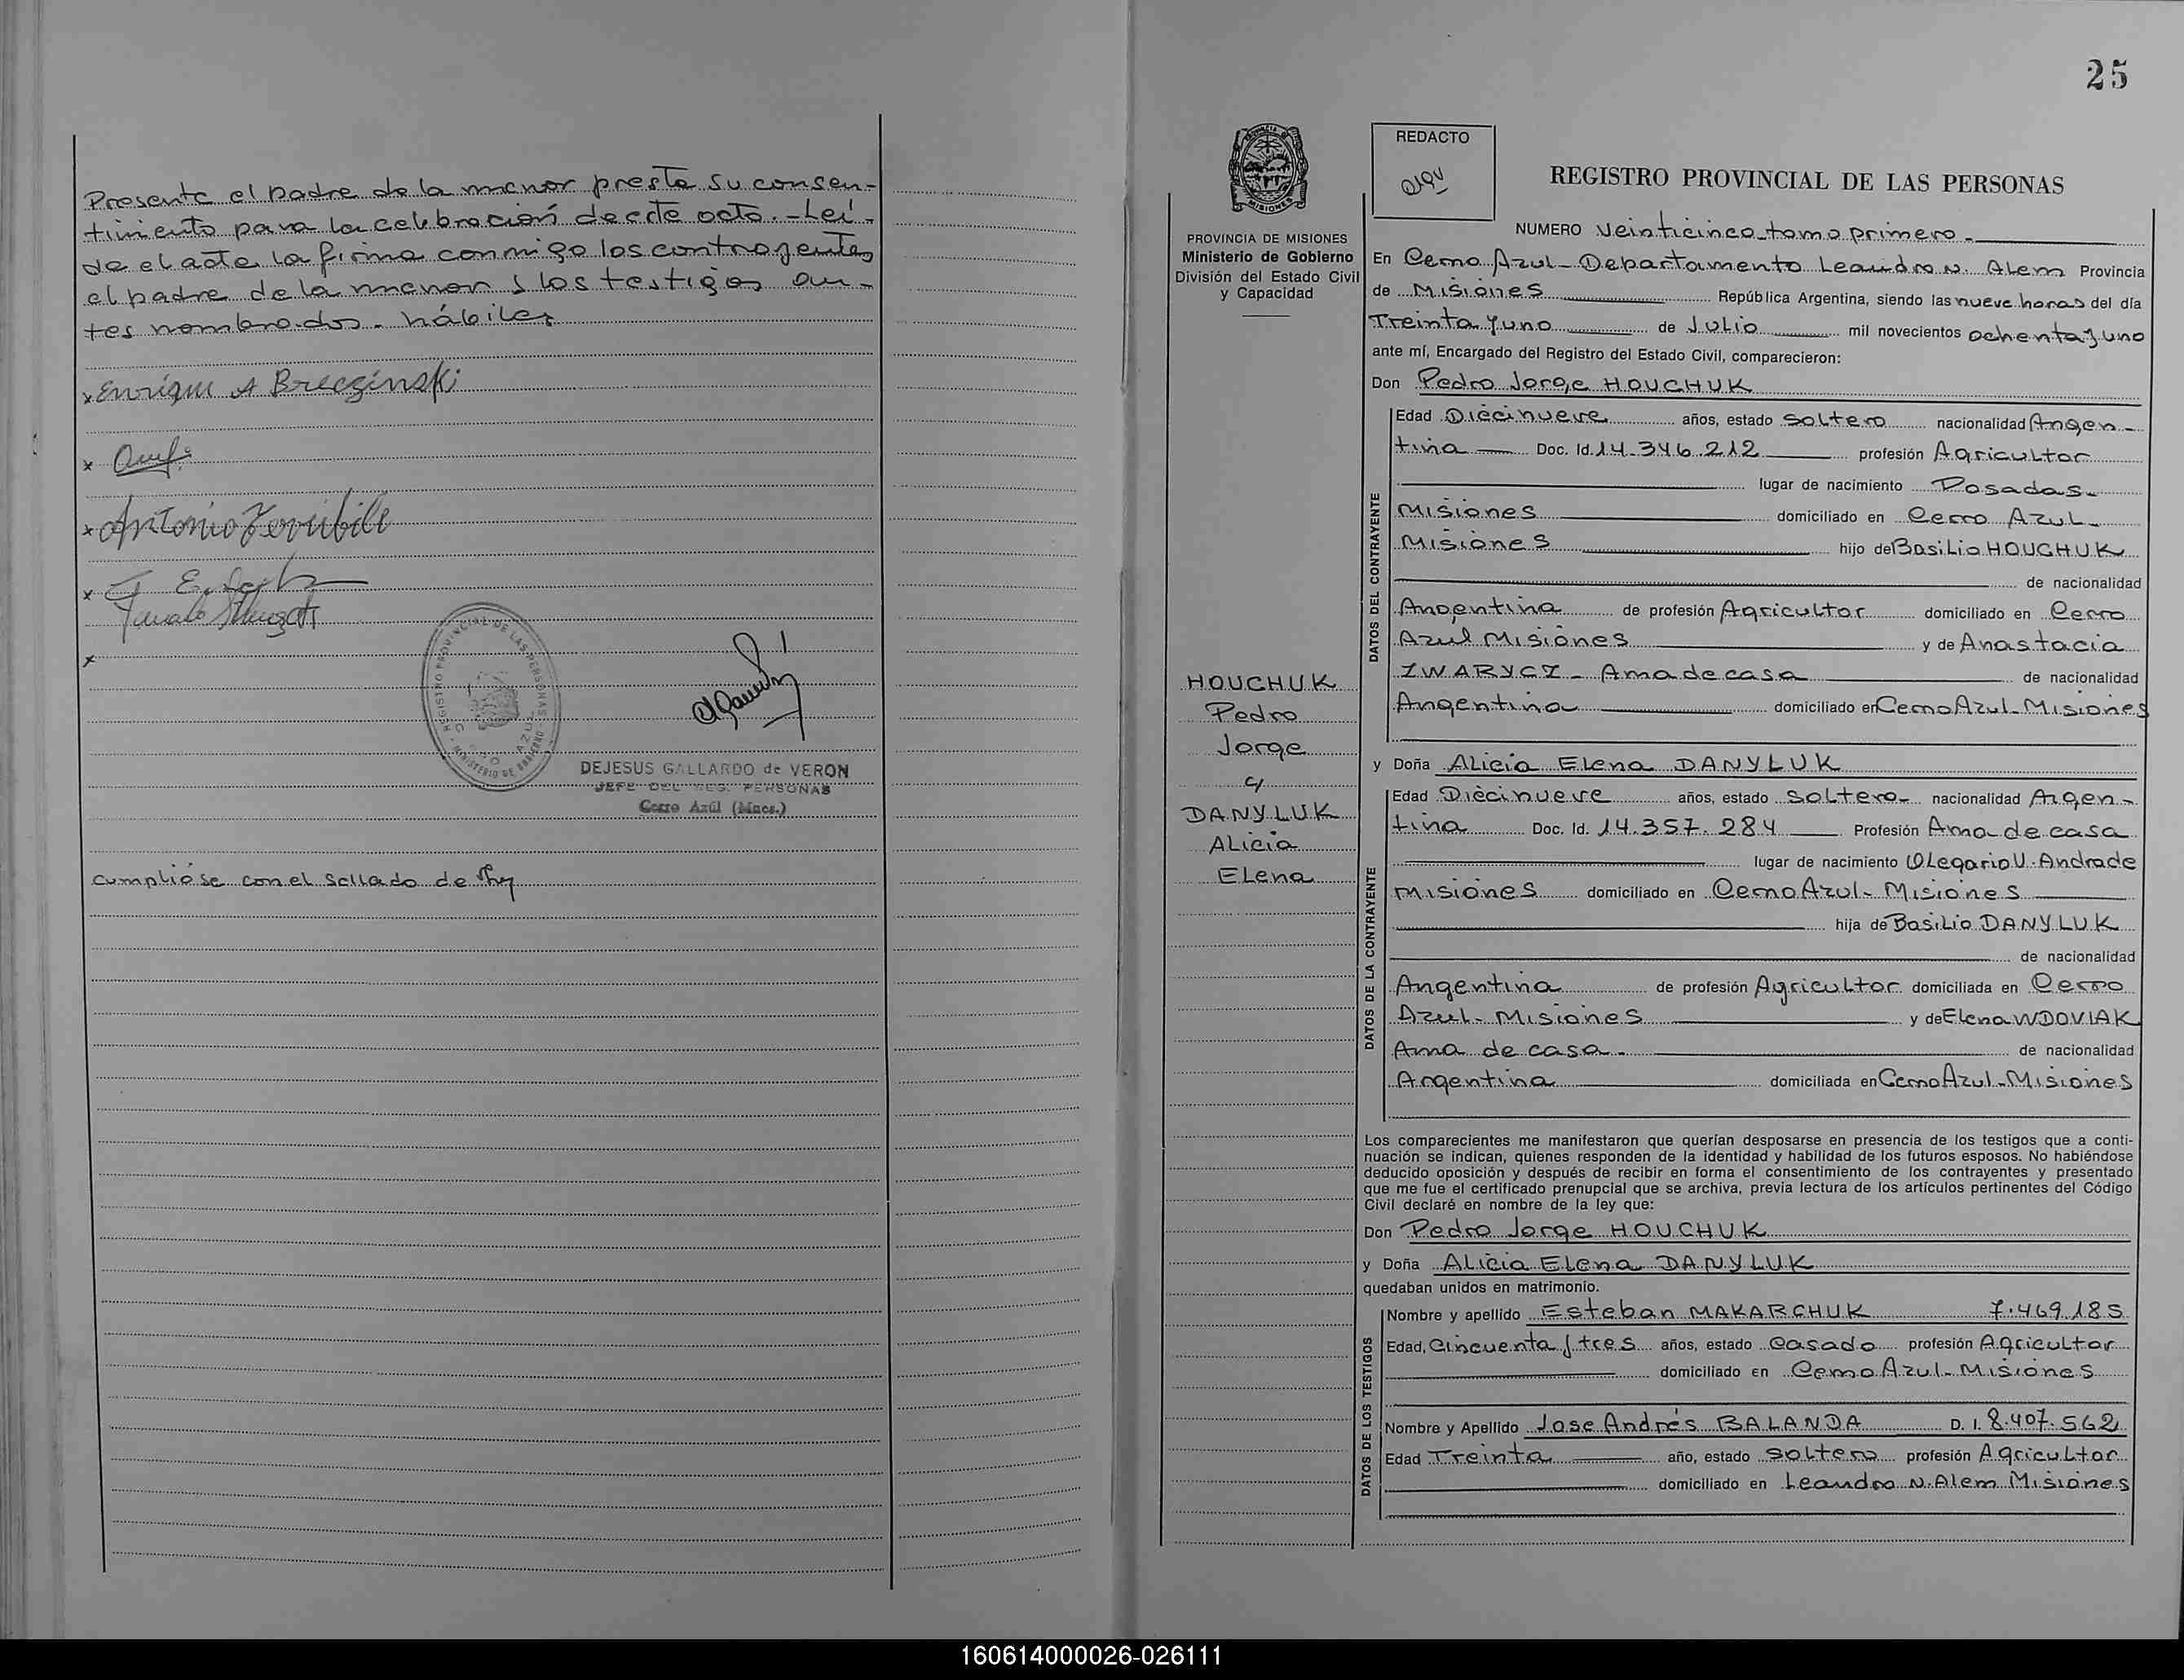 Presente el padre de la menor presta su consen-
timiento para la celebración de este acto. - Leí-
da el acta la firma conmigo los contrayentes
el padre de la menor y los testigos an-
tes nombrados. hábiles
x Enrique A Breczinski
x
x Antonio Terribile
x
x
REGISTRO PROVINCIAL DE LAS PERSONAS
MINISTERIO DE GOBIERNO
DEJESUS GALLARDO de VERON
JEFE DEL REG. PERSONAS
Cerro Azúl (Mnes.)
cumplióse con el sellado de ley
25
PROVINCIA DE MISIONES
Ministerio de Gobierno
División del Estado Civil
y Capacidad
HOUCHUK
Pedro
Jorge
c/
DANYLUK
Alicia
Elena
REDACTO
REGISTRO PROVINCIAL DE LAS PERSONAS
NUMERO Veinticinco-tomo primero-
En Cerro Azul-Departamento Leandro N. Alem Provincia
de Misiones República Argentina, siendo las nueve horas del día
Treinta y uno de Julio mil novecientos ochenta y uno
ante mí, Encargado del Registro del Estado Civil, comparecieron:
Don Pedro Jorge HOUCHUK
DATOS DEL CONTRAYENTE
Edad Diecinueve años, estado Soltero nacionalidad Argen-
tina Doc. Id. 14.346.212 profesión Agricultor
lugar de nacimiento Posadas-
Misiones domiciliado en Cerro Azul-
Misiones hijo de Basilio HOUCHUK
de nacionalidad
Argentina de profesión Agricultor domiciliado en Cerro
Azul Misiones y de Anastacia
IWARYCZ - Ama de casa de nacionalidad
Argentina domiciliado en Cerro Azul-Misiones
y Doña Alicia Elena DANYLUK
DATOS DE LA CONTRAYENTE
Edad Diecinueve años, estado Soltera- nacionalidad Argen-
tina Doc. Id. 14.357.284 Profesión Ama de casa
lugar de nacimiento Olegario V. Andrade
Misiones domiciliado en Cerro Azul-Misiones
hija de Basilio DANYLUK
de nacionalidad
Argentina de profesión Agricultor domiciliada en Cerro
Azul-Misiones y de Elena WDOVIAK
Ama de casa- de nacionalidad
Argentina domiciliada en Cerro Azul-Misiones
Los comparecientes me manifestaron que querían desposarse en presencia de los testigos que a conti-
nuación se indican, quienes responden de la identidad y habilidad de los futuros esposos. No habiéndose
deducido oposición y después de recibir en forma el consentimiento de los contrayentes y presentado
que me fue el certificado prenupcial que se archiva, previa lectura de los artículos pertinentes del Código
Civil declaré en nombre de la ley que:
Don Pedro Jorge HOUCHUK
y Doña Alicia Elena DANYLUK
quedaban unidos en matrimonio.
DATOS DE LOS TESTIGOS
Nombre y apellido Esteban MAKARCHUK 7.469.185
Edad, Cincuenta y tres años, estado Casado profesión Agricultor
domiciliado en Cerro Azul-Misiones
Nombre y Apellido Jose Andrés BALANDA D. I. 8.407.562
Edad Treinta año, estado Soltero profesión Agricultor
domiciliado en Leandro N. Alem Misiones
160614000026-026111